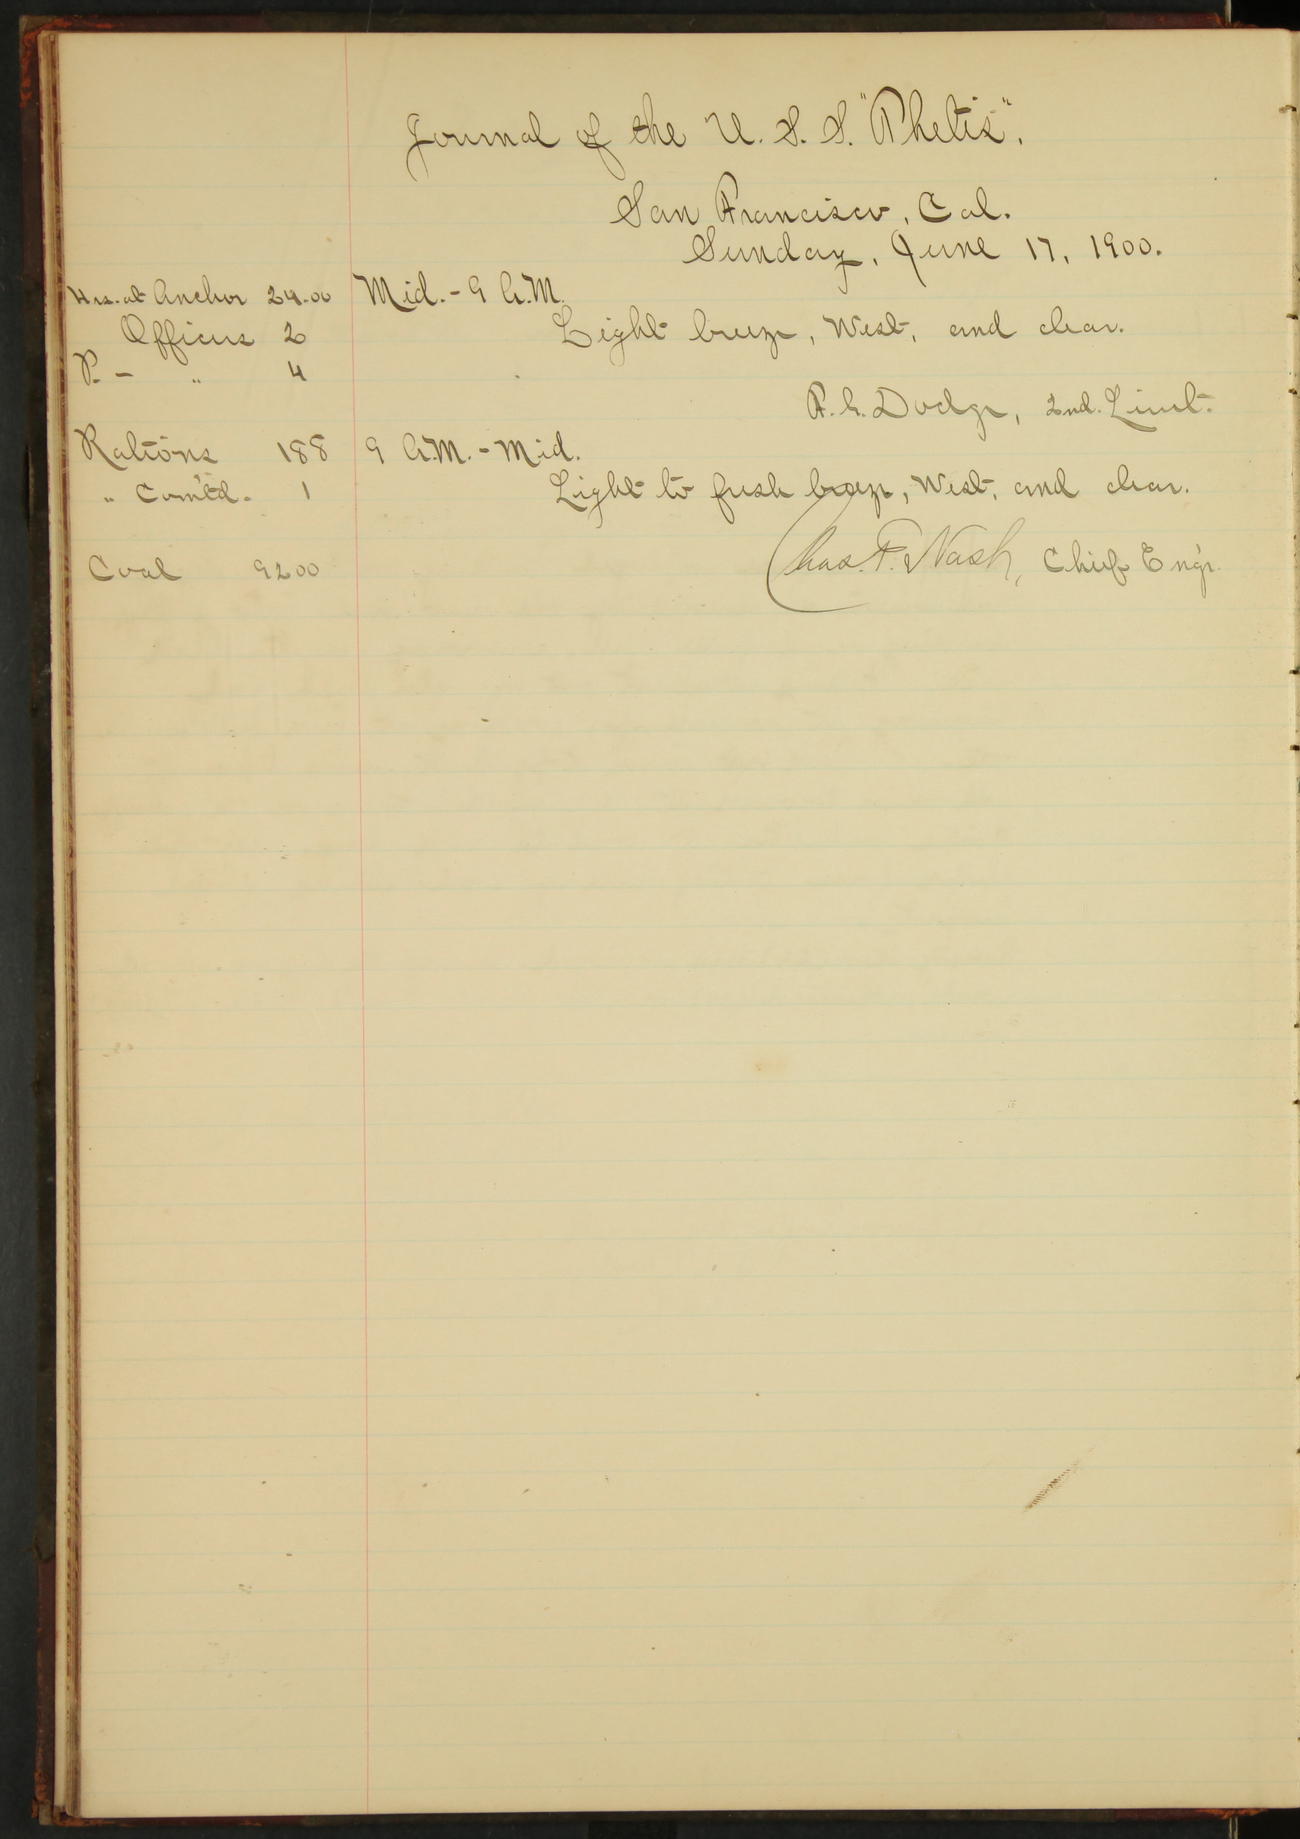 Journal of the U. S. S. "Thetis".
San Francisco, Cal.
Sunday, June 17, 1900.
Hrs. at Anchor 24.00 Mid. - 9 A.M.
Officers 2 Light breeze, West, and clear.
P. - " 4
F. G. Dodge, 2nd. Lieut.
Rations 188 9 A.M. - Mid.
" Com'td. 1 Light to fresh breeze, West, and clear.
Coal 9200 Chas. F. Nash, Chief Eng'r.